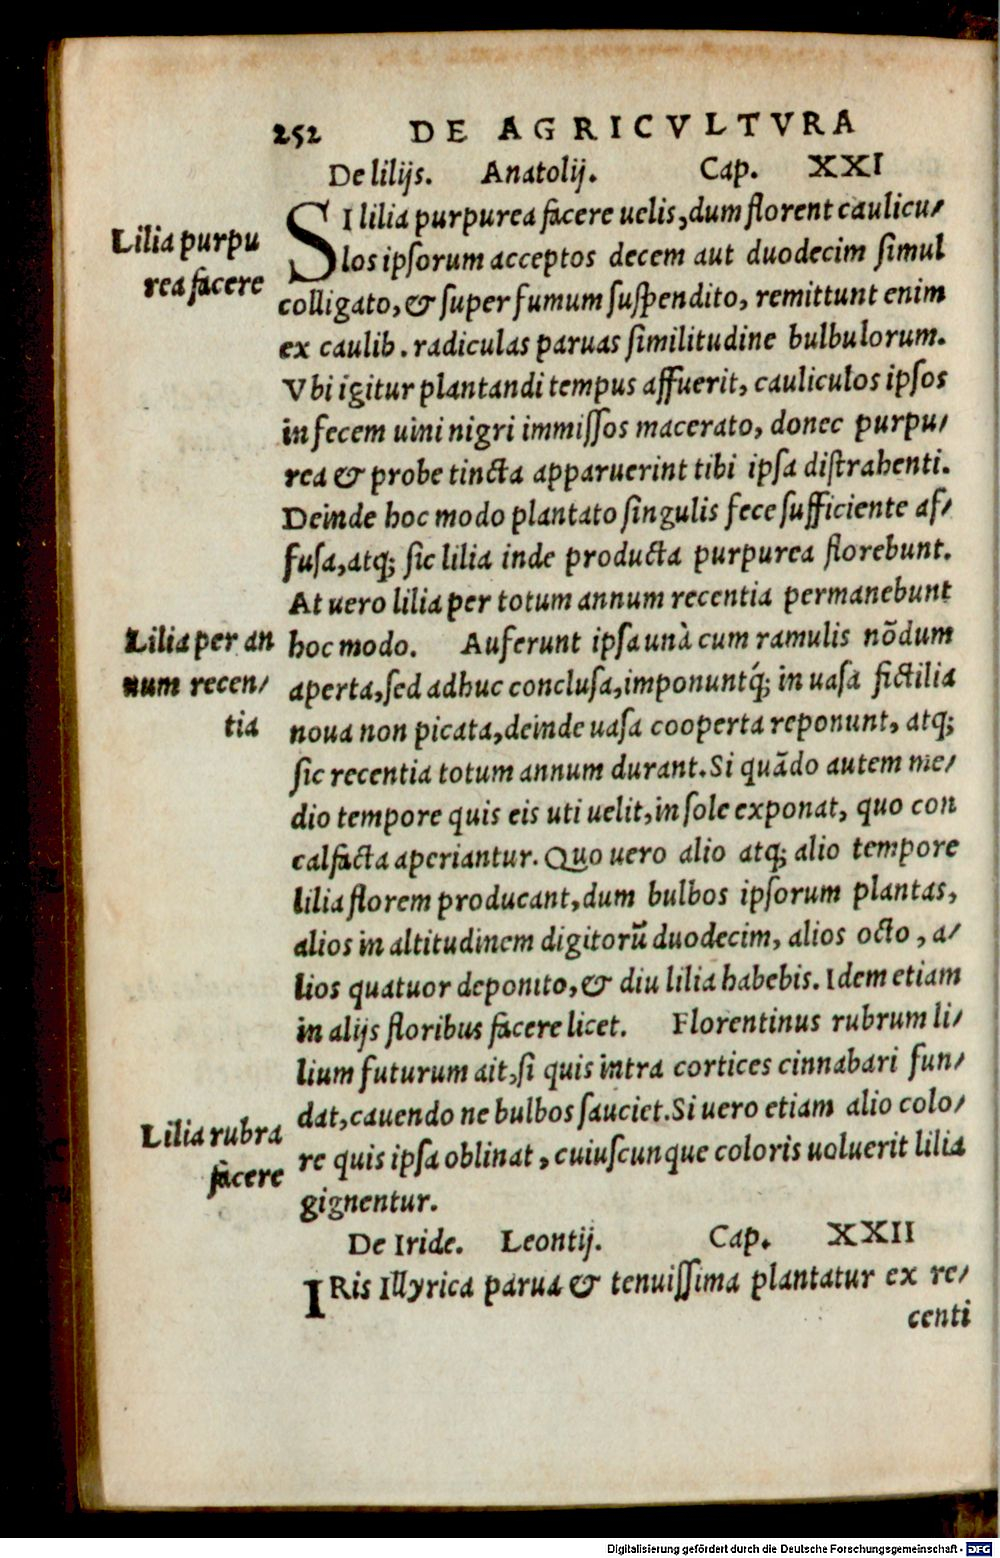 252 DE AGRICVLTVRA
De lilijs. Anatolij. Cap. XXI
Lilia purpu
rea facere
SI lilia purpurea facere uelis, dum florent caulicu/
los ipsorum acceptos decem aut duodecim simul
colligato, & super fumum suspendito, remittunt enim
ex caulib. radiculas paruas similitudine bulbulorum.
Vbi igitur plantandi tempus affuerit, cauliculos ipsos
in fecem uini nigri immissos macerato, donec purpu/
rea & probe tincta apparuerint tibi ipsa distrahenti.
Deinde hoc modo plantato singulis fece sufficiente af/
fusa, atq; sic lilia inde producta purpurea florebunt.
At uero lilia per totum annum recentia permanebunt
Lilia per an
num recen/
tia
hoc modo. Auferunt ipsa unà cum ramulis nōdum
aperta, sed adhuc conclusa, imponuntq́; in uasa fictilia
noua non picata, deinde uasa cooperta reponunt, atq;
sic recentia totum annum durant. Si quādo autem me/
dio tempore quis eis uti uelit, in sole exponat, quo con
calfacta aperiantur. Quo uero alio atq; alio tempore
lilia florem producant, dum bulbos ipsorum plantas,
alios in altitudinem digitorū duodecim, alios octo, a/
lios quatuor deponito, & diu lilia habebis. Idem etiam
in alijs floribus facere licet. Florentinus rubrum li/
lium futurum ait, si quis intra cortices cinnabari fun/
dat, cauendo ne bulbos sauciet. Si uero etiam alio colo/
Lilia rubra
facere
re quis ipsa oblinat, cuiuscunque coloris uoluerit lilia
gignentur.
De Iride. Leontij. Cap. XXII
IRis Illyrica parua & tenuissima plantatur ex re/
centi
Digitalisierung gefördert durch die Deutsche Forschungsgemeinschaft - DFG